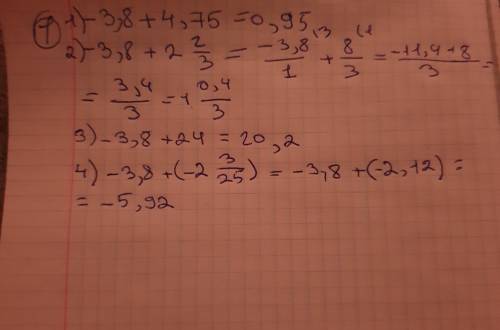 7 1) -3,8 + 4,75 = 0,95
2) -3,8 + 2 2/3 = -3,8/1 (3 + 8/3 (1 = -11,4+8/3 =
= 3,4/3 = 1 0,4/3
3) -3,8 + 24 = 20,2
4) -3,8 + (-2 3/25) = -3,8 + (-2,12) =
= -5,92